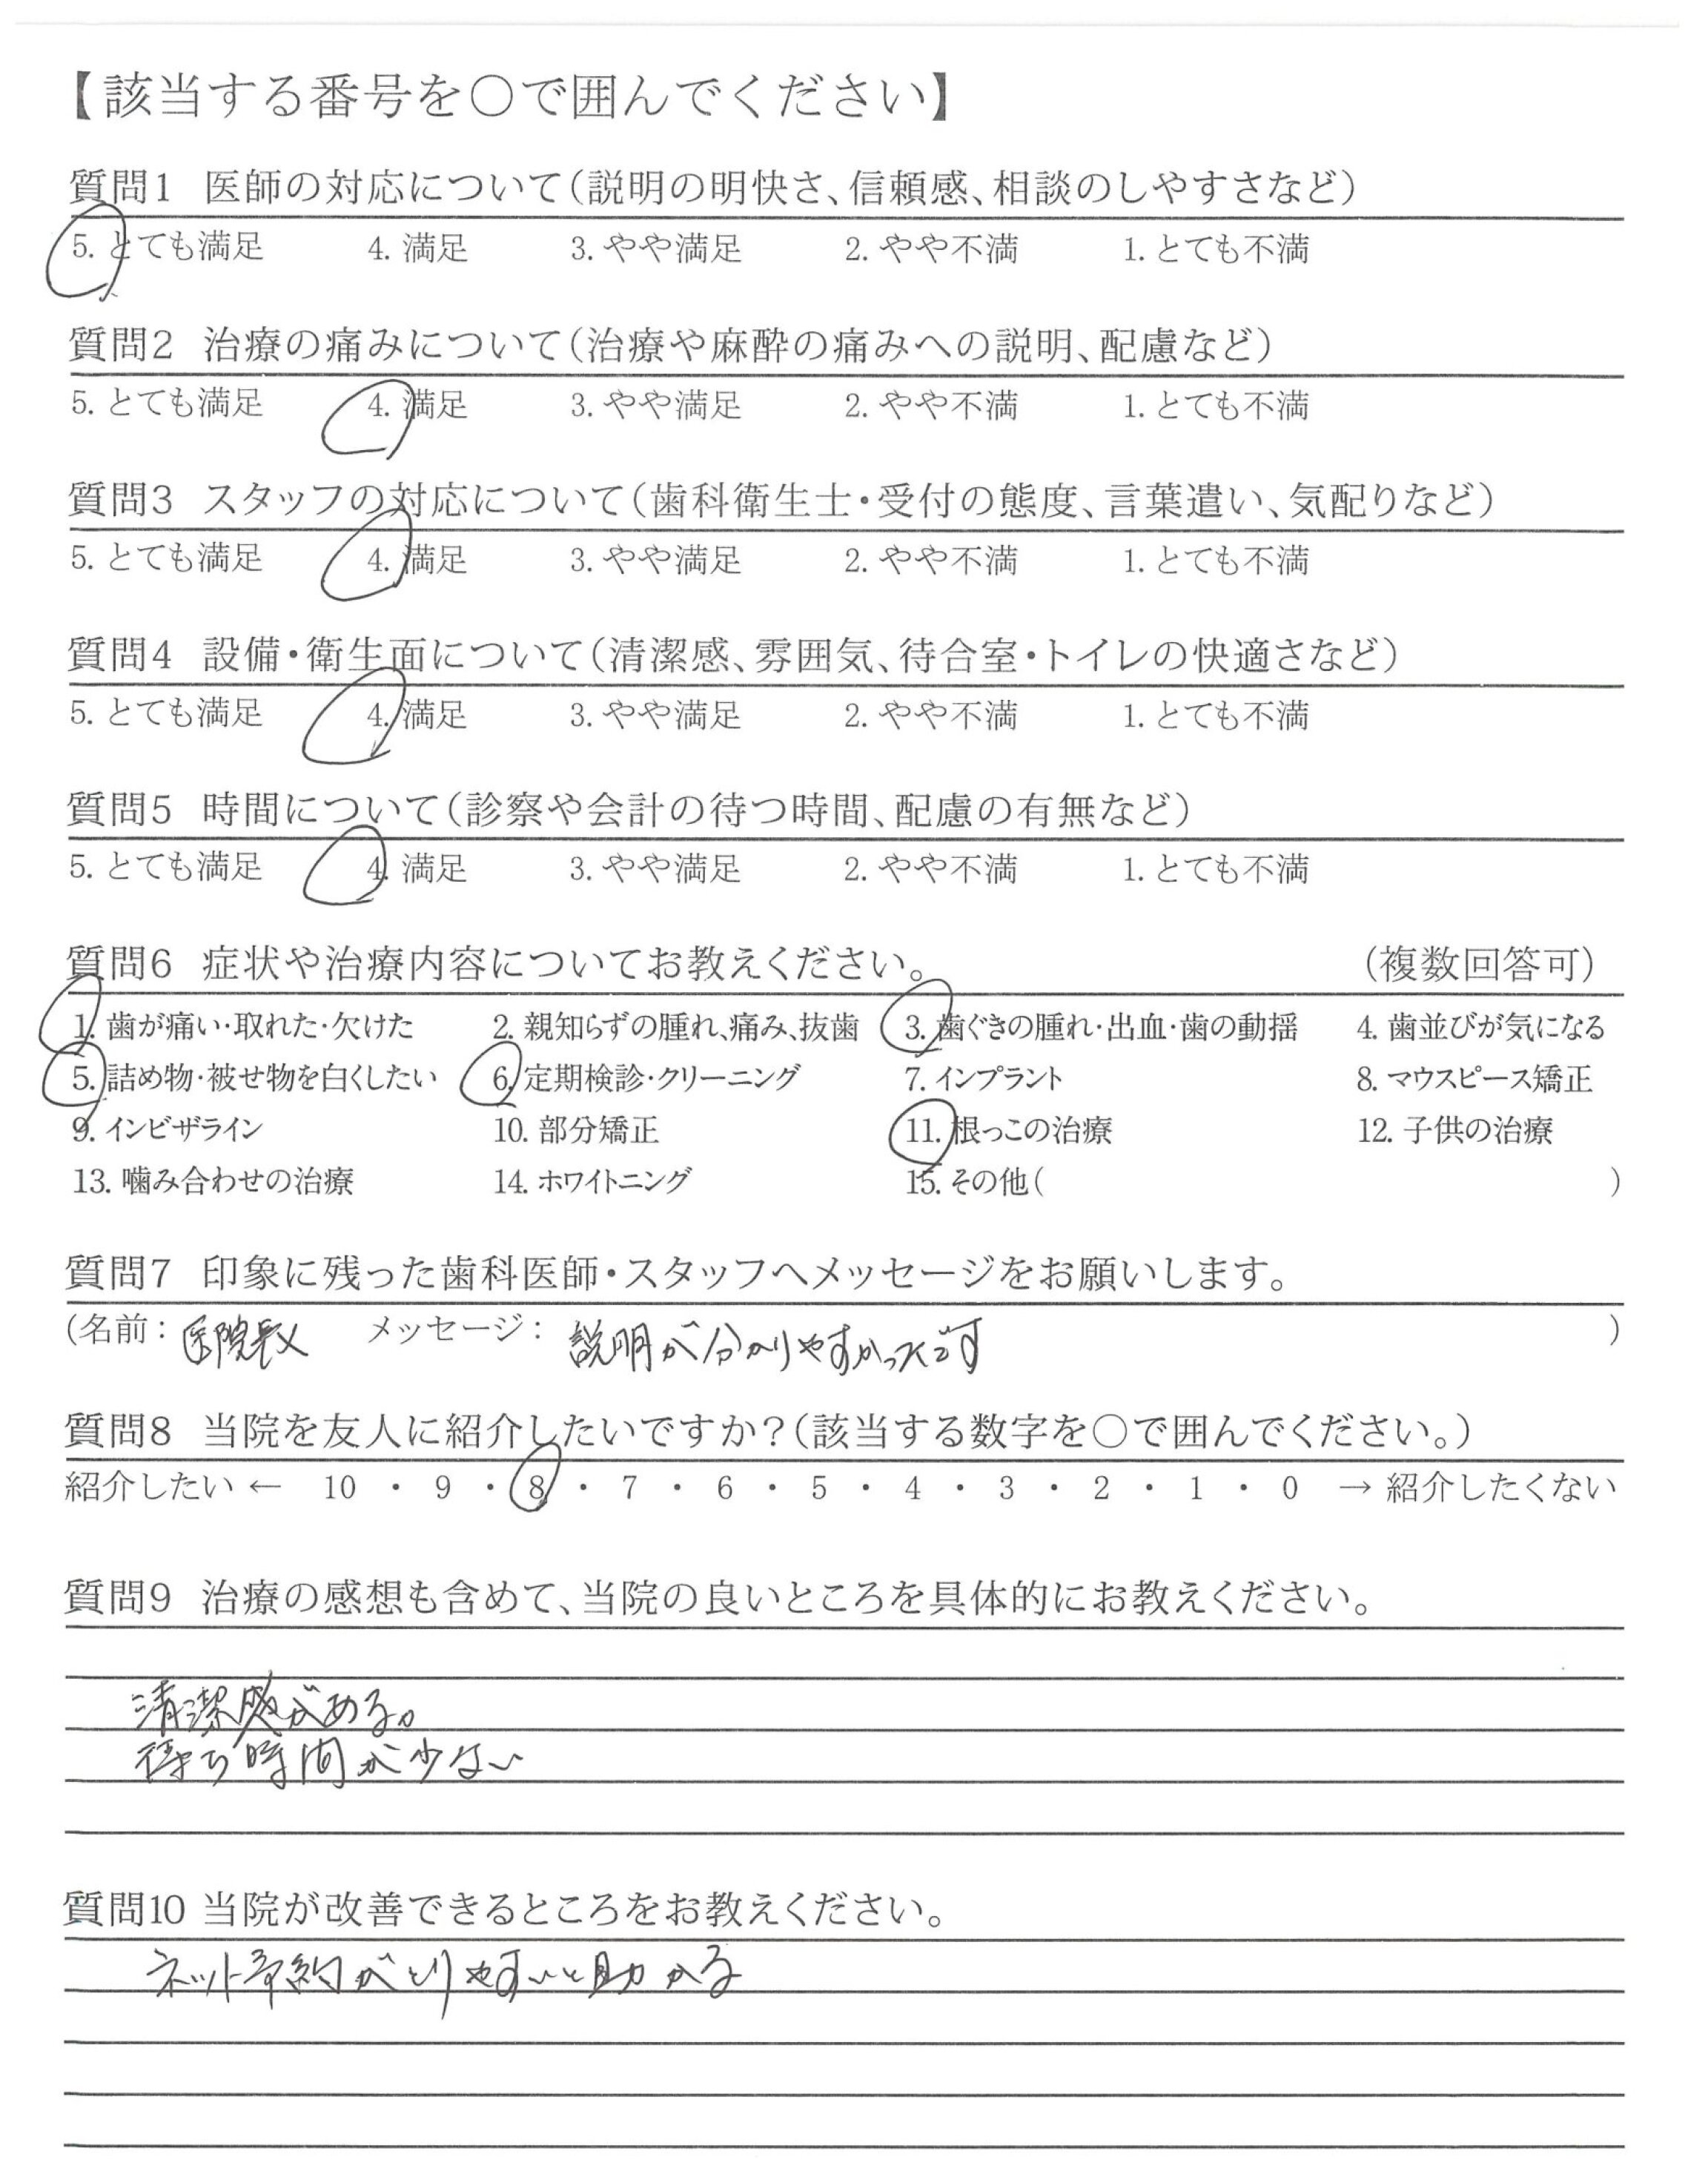 【該当する番号を○で囲んでください】
質問1 医師の対応について(説明の明快さ、信頼感、相談のしやすさなど)
5. とても満足 4. 満足 3. やや満足 2. やや不満 1. とても不満
質問2 治療の痛みについて(治療や麻酔の痛みへの説明、配慮など)
5. とても満足 4. 満足 3. やや満足 2. やや不満 1. とても不満
質問3 スタッフの対応について(歯科衛生士・受付の態度、言葉遣い、気配りなど)
5. とても満足 4. 満足 3. やや満足 2. やや不満 1. とても不満
質問4 設備・衛生面について(清潔感、雰囲気、待合室・トイレの快適さなど)
5. とても満足 4. 満足 3. やや満足 2. やや不満 1. とても不満
質問5 時間について(診察や会計の待つ時間、配慮の有無など)
5. とても満足 4. 満足 3. やや満足 2. やや不満 1. とても不満
質問6 症状や治療内容についてお教えください。 (複数回答可)
1. 歯が痛い・取れた・欠けた 2. 親知らずの腫れ、痛み、抜歯 3. 歯ぐきの腫れ・出血・歯の動揺 4. 歯並びが気になる
5. 詰め物・被せ物を白くしたい 6. 定期検診・クリーニング 7. インプラント 8. マウスピース矯正
9. インビザライン 10. 部分矯正 11. 根っこの治療 12. 子供の治療
13. 噛み合わせの治療 14. ホワイトニング 15. その他( )
質問7 印象に残った歯科医師・スタッフへメッセージをお願いします。
(名前: 医院長 メッセージ: 説明が分かりやすかったです )
質問8 当院を友人に紹介したいですか?(該当する数字を○で囲んでください。)
紹介したい ← 10 ・ 9 ・ 8 ・ 7 ・ 6 ・ 5 ・ 4 ・ 3 ・ 2 ・ 1 ・ 0 → 紹介したくない
質問9 治療の感想も含めて、当院の良いところを具体的にお教えください。
清潔感がある。
待ち時間が少ない
質問10 当院が改善できるところをお教えください。
ネット予約がとりやすいと助かる